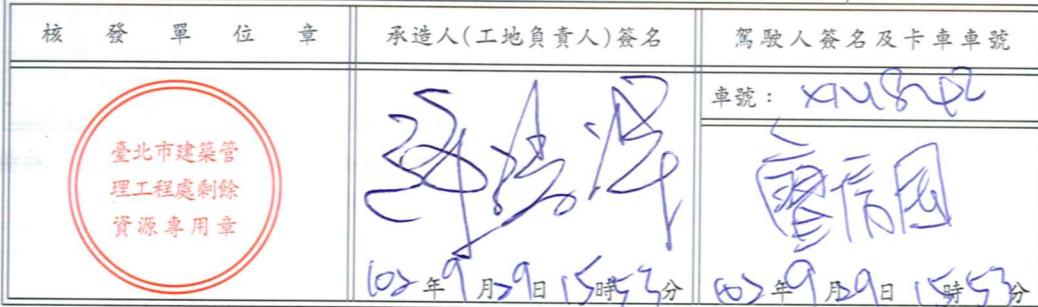 核發單位章
承造人(工地負責人)簽名
駕駛人簽名及卡車車號
臺北市建築管
理工程處剩餘
資源專用章
車號：
廖信國
102年9月29日15時53分
102年9月29日15時53分